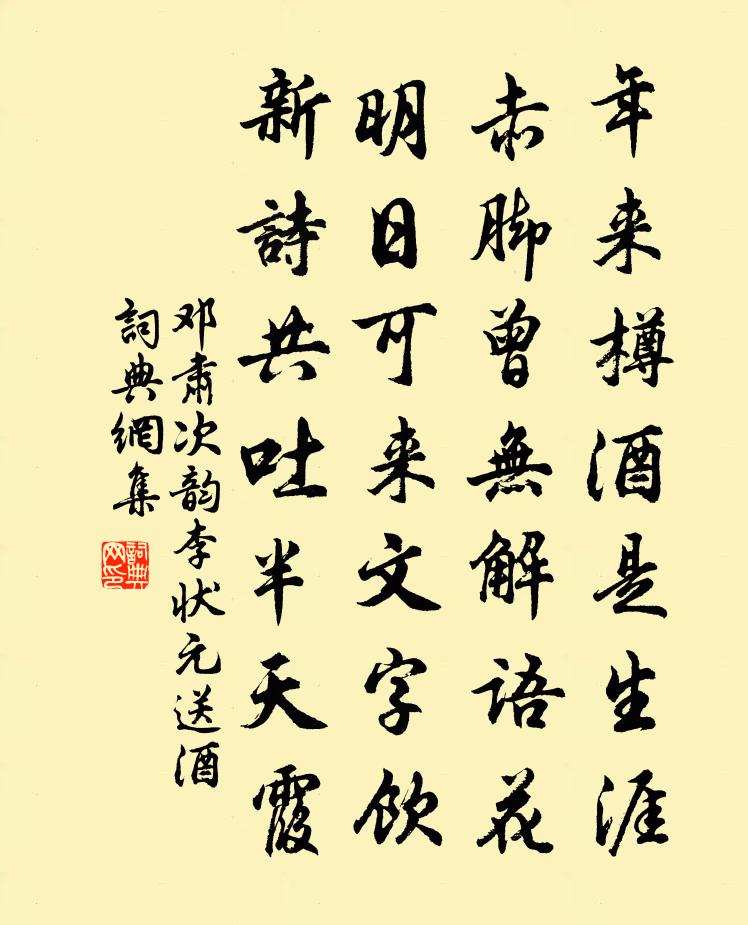 年来樽酒是生涯
赤脚曾無解语花
明日可来文字饮
新詩共吐半天霞
邓肃次韵李状元送酒
詞典網集
詞典网印